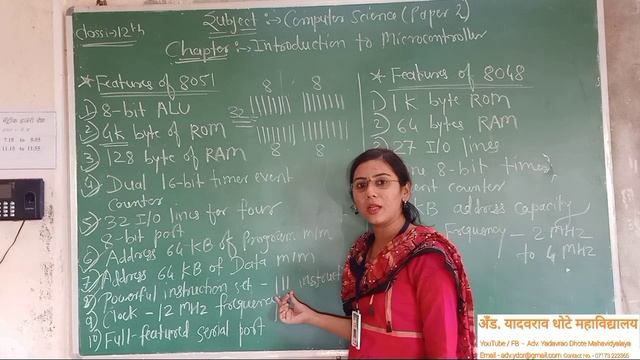 Class:-12th
Subject:- Computer Science (Paper 2)
Chapter:- Introduction to Microcontroller
* Features of 8051
1) 8-bit ALU
2) 4k byte of ROM
3) 128 byte of RAM
4) Dual 16-bit timer event
counter
5) 32 I/O lines for four
8-bit port
6) Address 64 KB of Program m/m
7) Address 64 KB of Data m/m
8) Powerful instruction set - 111 instruct
9) Clock - 12 MHz frequency
10) Full-featured serial port
8 8
32
8 8
* Features of 8048
1) 1K byte ROM
2) 64 bytes RAM
27 I/O lines
8-bit timer
counter
KB address capacity
Frequency - 2 MHz
to 4 MHz
7.15
11.15
अँड. यादवराव धोटे महाविद्यालय
YouTube / FB - Adv. Yadavrao Dhote Mahavidyalaya
Email - adv.ydcr@gmail.com Contact No. - 07173 222065